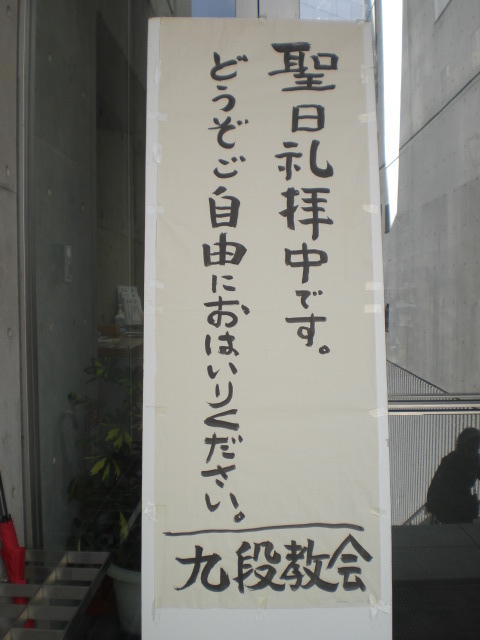 聖日礼拝中です。
どうぞご自由におはいりください。
九段教会